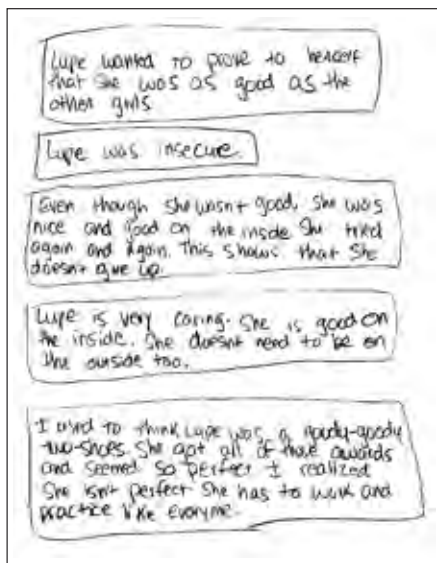 Lupe wanted to prove to herself
that she was as good as the
other girls
Lupe was insecure.
Even though she wasn't good, she was
nice and good on the inside. She tried
again and again. This shows that she
doesn't give up.
Lupe is very caring. She is good on
the inside. She doesnt need to be on
the outside too.
I used to think Lupe was a goody-goody
two-shoes. She got all of those awards
and seemed so perfect I realized
She isn't perfect She has to work and
practice like everyone.